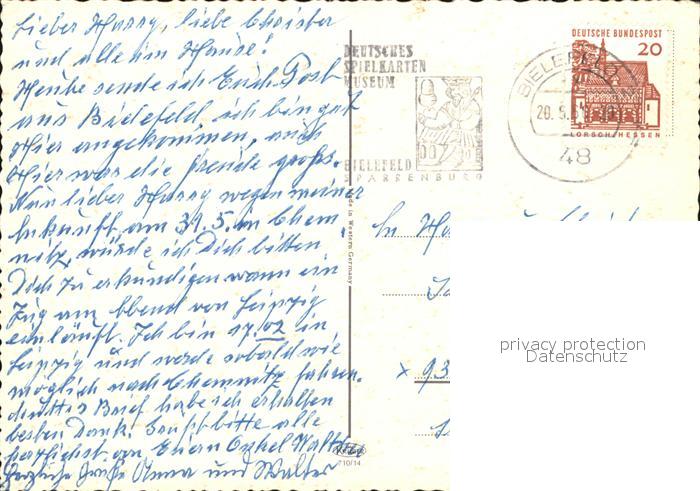 Lieber Harry, liebe Christer
und alle im Hause!
Heute sende ich Euch Post
aus Bielefeld ich bin gut
hier angekommen, auch
hier war die Freude groß.
Nun lieber Harry wegen meiner
Ankunft am 31.5. in Chem
nitz, würde ich Dich bitten
Dich zu erkundigen wann ein
Zug am Abend von Leipzig
einläuft. Ich bin 17.02 in
Leipzig und werde sobald wie
möglich nach Chemnitz fahren.
Brief habe ich erhalten
besten Dank. Grüßt bitte alle
herzlichst von Euern Onkel Walter
Herzliche Grüße Anna und Walter
DEUTSCHES
SPIELKARTEN
MUSEUM
BIELEFELD
SPARRENBURG
BIELEFELD
20.5.
48
DEUTSCHE BUNDESPOST
20
LORSCH/HESSEN
Made in Western Germany
710/14
x 93
privacy protection
Datenschutz